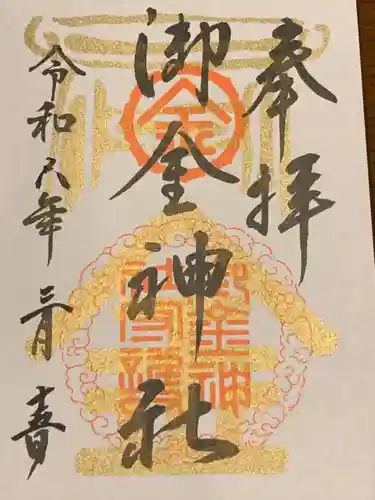 奉拝
御金神社
金
御金神
社
令和六年三月春